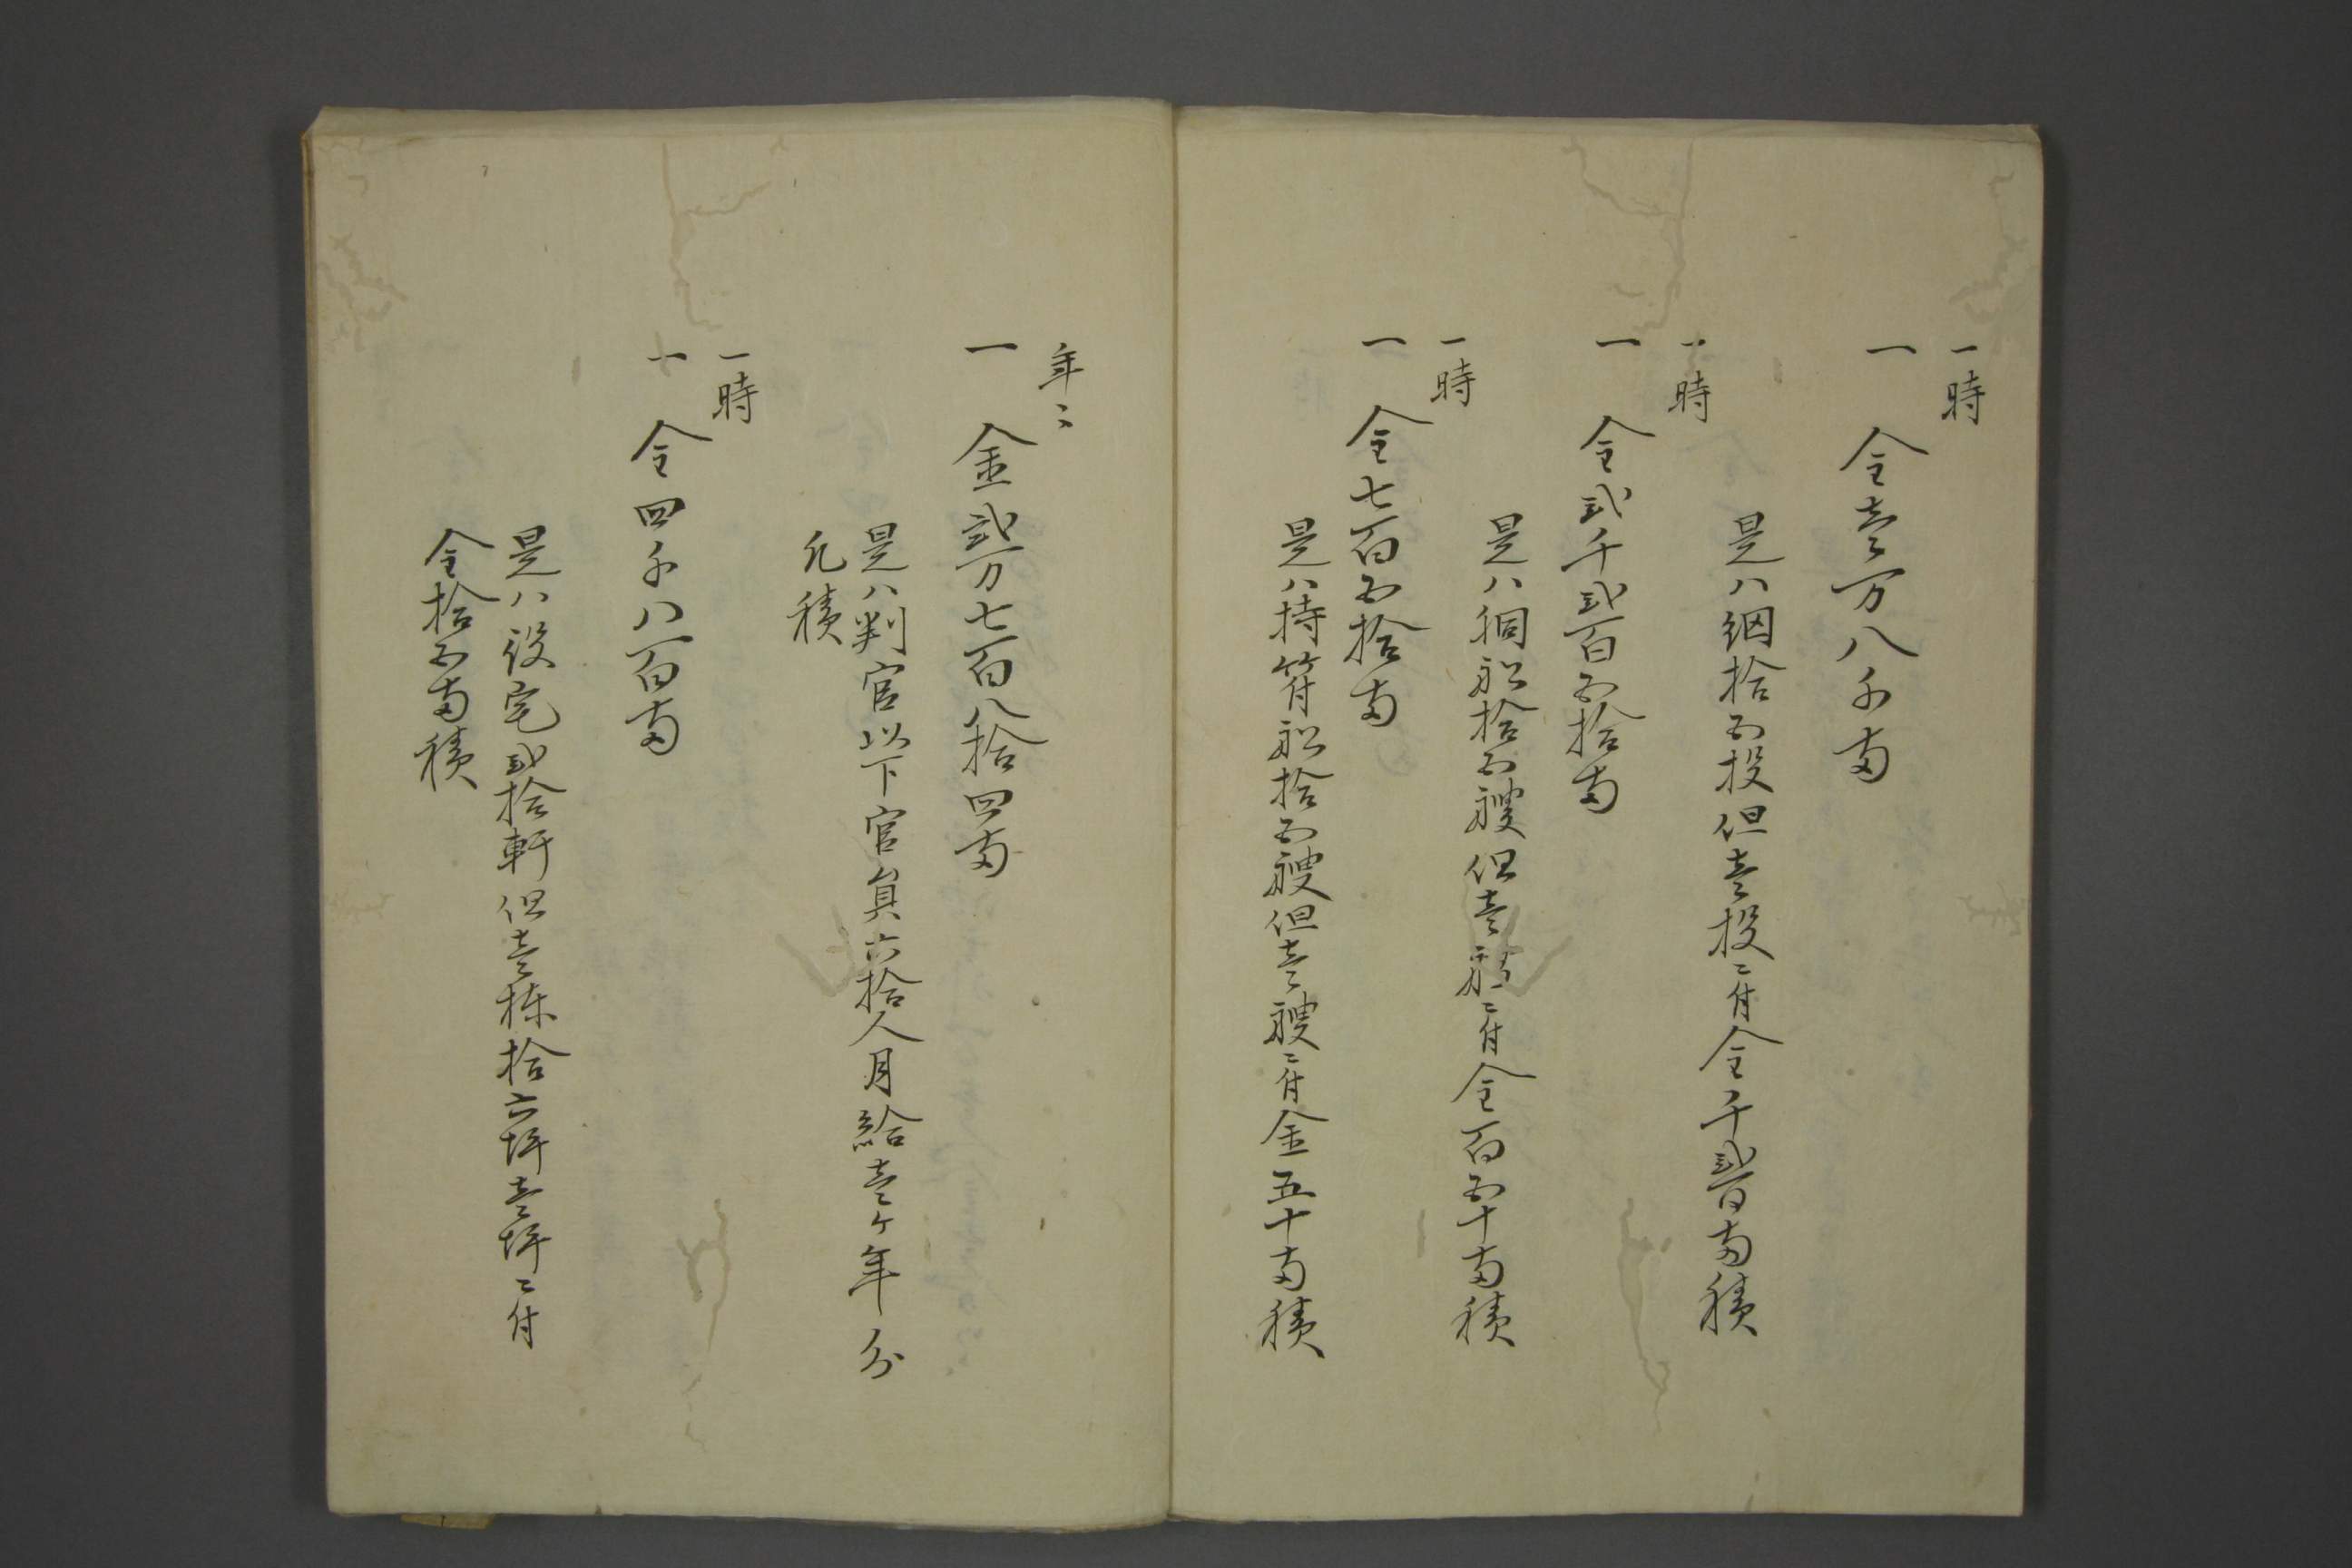 一時
一 金壱万八千両
是ハ網拾五投但壱投ニ付金千弐百両積
一時
一 金弐千弐百五拾両
是ハ胴船拾五艘但壱艘ニ付金百五十両積
一時
一 金七百五拾両
是ハ持符船拾五艘但壱艘ニ付金五十両積
年々
一 金弐万七百八拾四両
是ハ判官以下官員六拾人月給壱ケ年分
凡積
一時
一 金四千八百両
是ハ役宅弐拾軒但壱棟拾六坪壱坪ニ付
金拾五両積